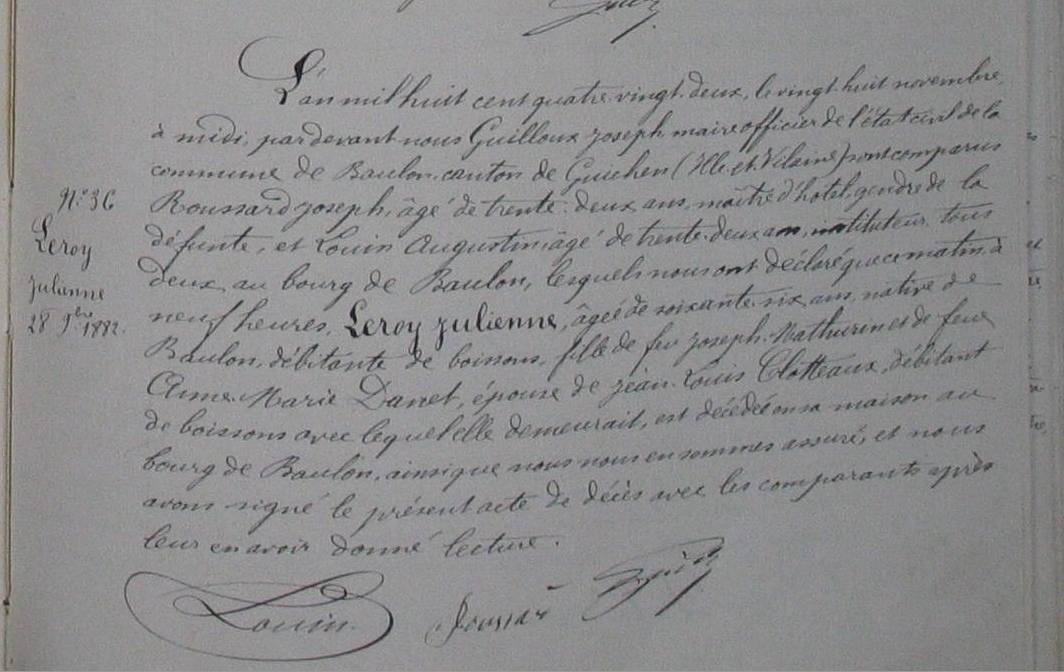 L'an mil huit cent quatre-vingt-deux, le vingt-huit novembre,
à midi, par devant nous Guilloux Joseph maire officier de l'état civil de la
commune de Baulon, canton de Guichen (Ille-et-Vilaine) sont comparus
N° 36
Roussard Joseph, âgé de trente-deux ans, maître d'hôtel, gendre de la
Leroy
défunte, et Louis Augustin, âgé de trente-deux ans, instituteur, tous
Julienne
deux au bourg de Baulon, lesquels nous ont déclaré que ce matin, à
28 9bre 1882.
neuf heures, Leroy Julienne, âgée de soixante-six ans, native de
Baulon, débitante de boissons, fille de feu Joseph-Mathurin et de feue
Anne-Marie Danet, épouse de Jean-Louis Clotteaux, débitant
de boissons avec lequel elle demeurait, est décédée en sa maison au
bourg de Baulon, ainsi que nous nous en sommes assuré, et nous
avons signé le présent acte de décès avec les comparants après
leur en avoir donné lecture.